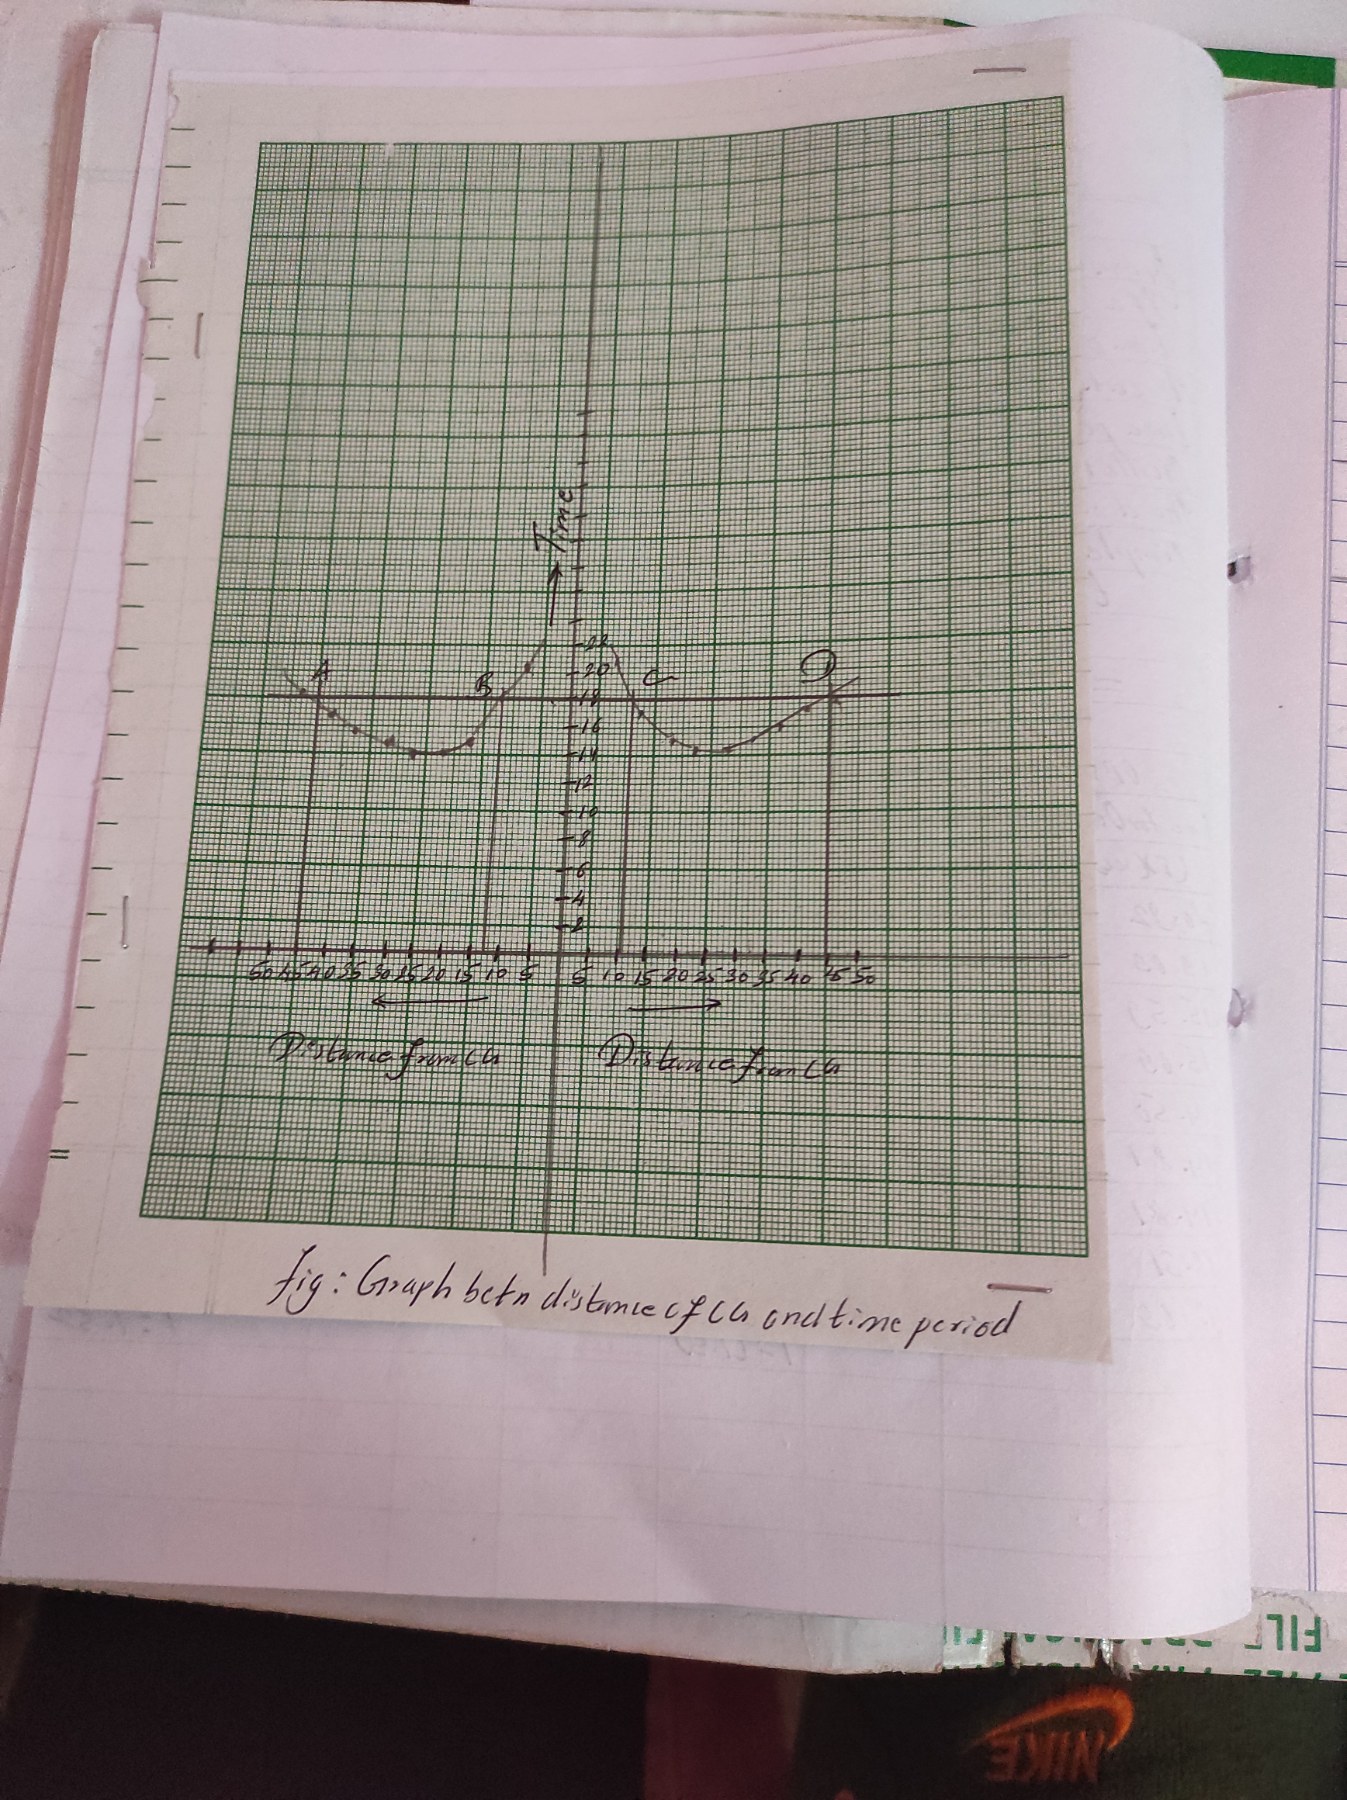 Time
22
A
20
C
D
B
18
16
14
12
10
8
6
4
2
50 45 40 35 30 25 20 15 10 5 5 10 15 20 25 30 35 40 45 50
Distance from CG Distance from CG
fig: Graph betn distance of CG and time period
FILE
NIKE